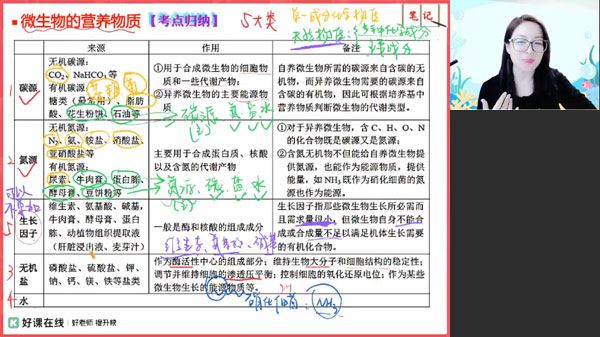 微生物的营养物质【考点归纳】
5大类
笔记
来源 作用 备注
碳源
无机碳源:
CO₂、NaHCO₃等
有机碳源:
糖类（最常用）、脂肪
酸、花生粉饼、石油等
①用于合成微生物的细胞物
质和一些代谢产物;
②异养微生物的主要能源物
质
自养微生物所需的碳源来自含碳的无
机物，而异养微生物需要的碳源来自
含碳的有机物，因此可根据培养基中
营养物质判断微生物的代谢类型。
氮源
无机氮源:
N₂、氨、铵盐、硝酸盐、
亚硝酸盐等
有机氮源:
尿素、牛肉膏、蛋白胨、
酵母膏、豆饼粉等
主要用于合成蛋白质、核酸
以及含氮的代谢产物
①对于异养微生物，含 C、H、O、N
的化合物既是碳源又是氮源;
②含氮无机物不但能给自养微生物提
供氮源，也能作为能源物质，提供
能量，如 NH₃既作为硝化细菌的氮
源也作为能源。
生长
因子
维生素、氨基酸、碱基，
牛肉膏、酵母膏、蛋白
胨、动植物组织提取液
（肝脏浸出液、麦芽汁）
一般是酶和核酸的组成成分
生长因子指那些微生物生长所必需而
且需求量很小，但微生物自身不能合
成或合成量不足以满足机体生长需要
的有机化合物。
无机
盐
磷酸盐、硫酸盐、钾、
钠、钙、镁、铁等盐类
作为酶活性中心的组成部分；维持生物大分子和细胞结构的稳定性；
调节并维持细胞的渗透压平衡；控制细胞的氧化还原电位；作为某些
微生物生长的能源物质等。
水
硝化细菌: NH₃
好课在线 好老师 提升快